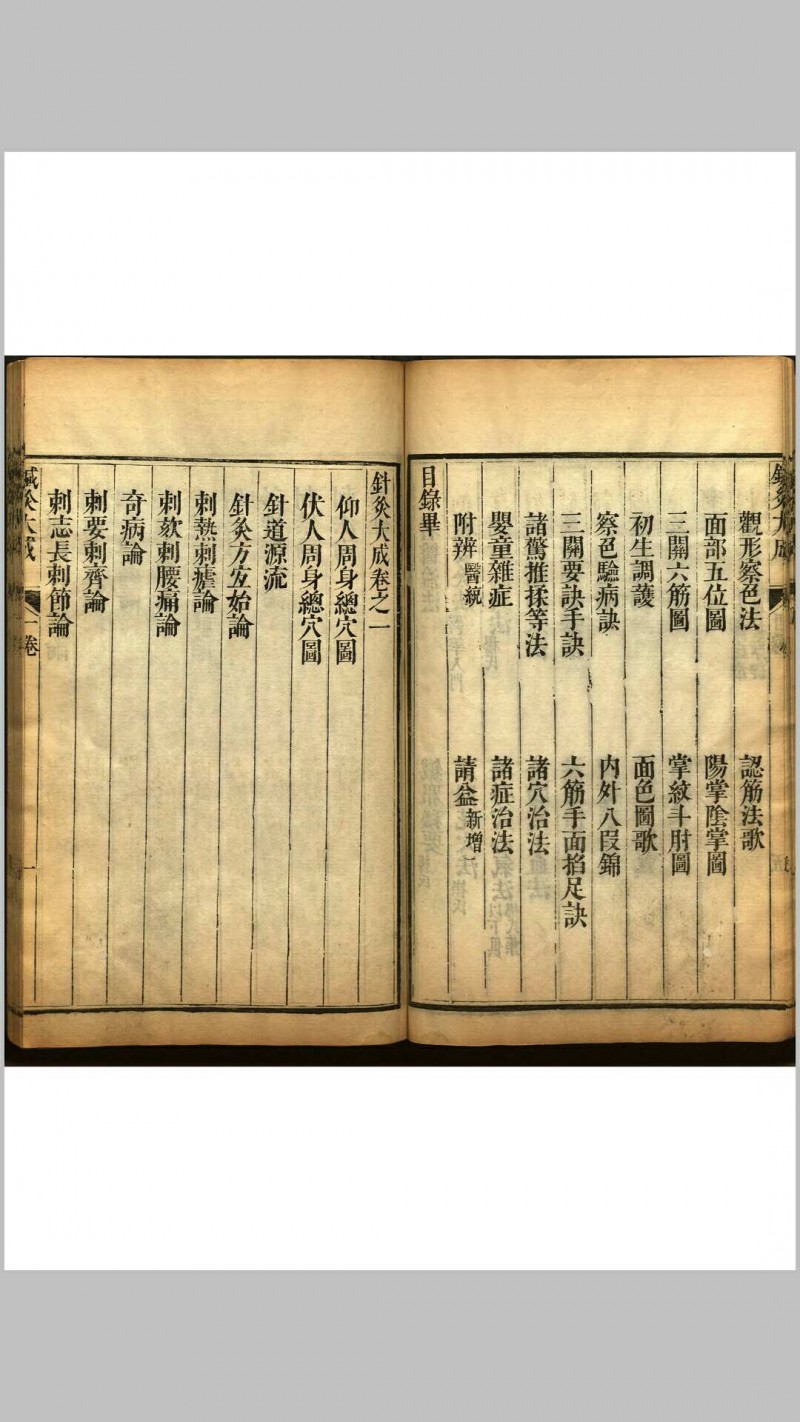 鍼灸大成
觀形察色法 認筋法歌
面部五位圖 陽掌陰掌圖
三關六筋圖 掌紋斗肘圖
初生調護 面色圖歌
察色驗病訣 內外八段錦
三關要訣手訣 六筋手面掐足訣
諸驚推揉等法 諸穴治法
嬰童雜症 諸症治法
附辨 醫統 請益 新增一
目錄畢
針灸大成卷之一
仰人周身總穴圖
伏人周身總穴圖
針道源流
針灸方宜始論
刺熱刺瘧論
刺欬刺腰痛論
奇病論
刺要刺齊論
刺志長刺節論
鍼灸大成 一卷 一